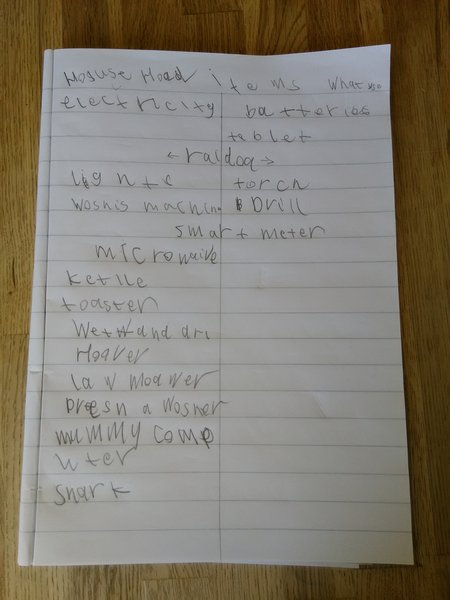 Hosuse Hoad items what use
electricity batteries
tablet
← raidoq →
lighte torch
woshis machine Drill
smart meter
microwaive
ketlle
toaster
wett and dri
Hoover
law moawer
Presh a wosher
mummy comp
uter
shark